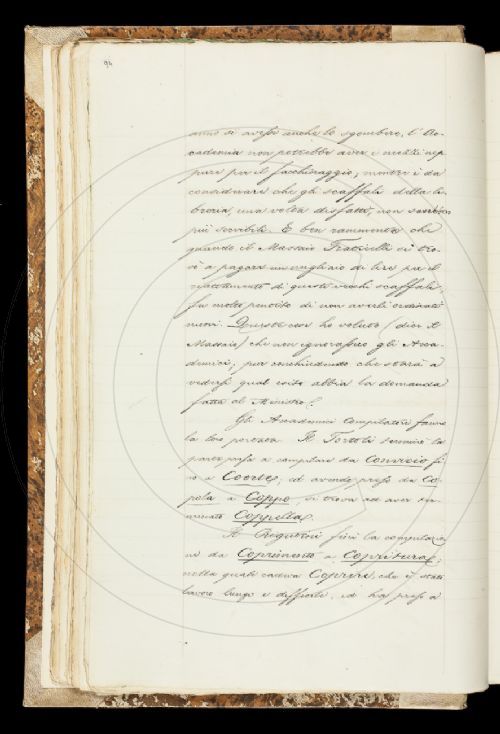 94
anno si avesse anche lo sgombero, l'Ac-
cademia non potrebbe aver i mezzi nep
pure per il facchinaggio, mentre è da
considerare che gli scaffali della li
breria, una volta disfatti, non
più servibili. E ben rammenta che
quando il Massaio Fraticelli si tro-
vò a pagare un migliaio di lire per il
riattamento di questi vecchi scaffali,
fu molto pentito di non averli ordinati
nuovi. Queste cose ha voluto (dice il
Massaio) che non ignorassero gli Acca-
demici; pur conchiudendo che starà a
vedersi qual esito abbia la domanda
fatta al Ministro.
Gli Accademici Compilatori fanno
la loro portata. Il Tortoli terminò la
parte presa a compilare da Convizio fi
no a Coorte, ed avendo preso da Co-
pola a Coppo, si trova ad aver ter-
minato Coppella.
Il Rigutini finì la compilazio
ne da Coprimento a Copritura,
nella quale cadeva Coprire, che è stato
lavoro lungo e difficile, ed ha preso a